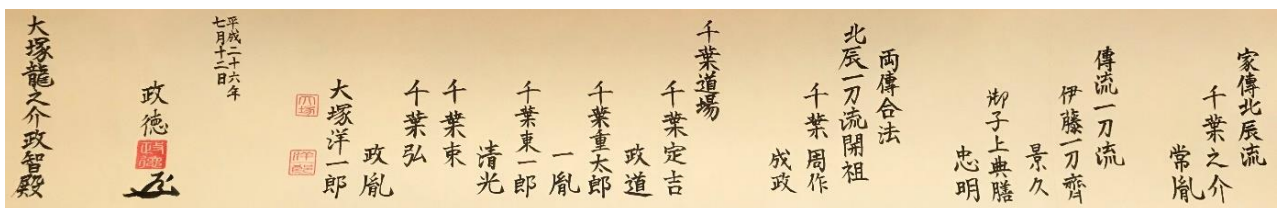 家傳北辰流
千葉之介
常胤
傳流一刀流
伊藤一刀齊
景久
御子上典膳
忠明
両傳合法
北辰一刀流開祖
千葉周作
成政
千葉道場
千葉定吉
政道
千葉重太郎
一胤
千葉東一郎
清光
千葉束
千葉弘
政胤
大塚洋一郎
大塚
平成二十六年
七月十二日
政徳
政徳
大塚龍之介政智殿